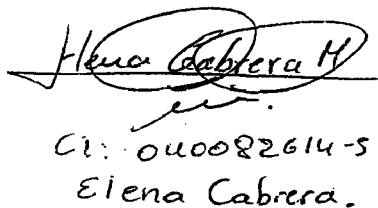 Elena Cabrera M
CI: 040082614-5
Elena Cabrera.